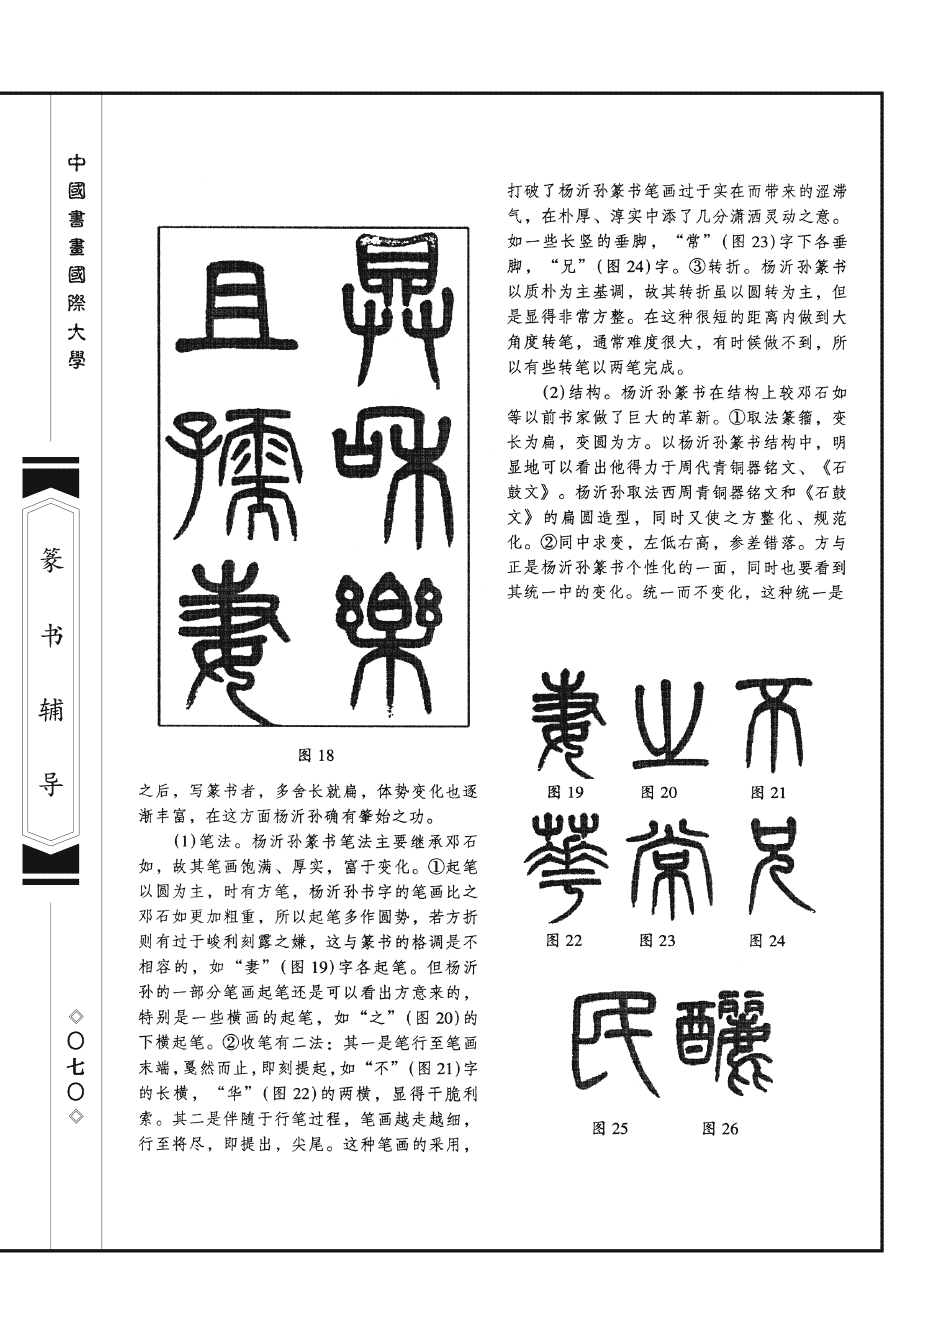 中國書畫國際大學
篆书辅导
◇〇七〇◇
其和樂
且孺妻
图 18
之后，写篆书者，多舍长就扁，体势变化也逐
渐丰富，在这方面杨沂孙确有肇始之功。
(1)笔法。杨沂孙篆书笔法主要继承邓石
如，故其笔画饱满、厚实，富于变化。①起笔
以圆为主，时有方笔，杨沂孙书字的笔画比之
邓石如更加粗重，所以起笔多作圆势，若方折
则有过于峻利刻露之嫌，这与篆书的格调是不
相容的，如“妻”(图 19)字各起笔。但杨沂
孙的一部分笔画起笔还是可以看出方意来的，
特别是一些横画的起笔，如“之”(图 20)的
下横起笔。②收笔有二法：其一是笔行至笔画
末端，戛然而止，即刻提起，如“不”(图 21)字
的长横，“华”(图 22)的两横，显得干脆利
索。其二是伴随于行笔过程，笔画越走越细，
行至将尽，即提出，尖尾。这种笔画的采用，
打破了杨沂孙篆书笔画过于实在而带来的涩滞
气，在朴厚、淳实中添了几分潇洒灵动之意。
如一些长竖的垂脚，“常”(图 23)字下各垂
脚，“兄”(图 24)字。③转折。杨沂孙篆书
以质朴为主基调，故其转折虽以圆转为主，但
是显得非常方整。在这种很短的距离内做到大
角度转笔，通常难度很大，有时候做不到，所
以有些转笔以两笔完成。
(2)结构。杨沂孙篆书在结构上较邓石如
等以前书家做了巨大的革新。①取法篆籀，变
长为扁，变圆为方。以杨沂孙篆书结构中，明
显地可以看出他得力于周代青铜器铭文、《石
鼓文》。杨沂孙取法西周青铜器铭文和《石鼓
文》的扁圆造型，同时又使之方整化、规范
化。②同中求变，左低右高，参差错落。方与
正是杨沂孙篆书个性化的一面，同时也要看到
其统一中的变化。统一而不变化，这种统一是
妻 之 不
图 19 图 20 图 21
華 常 兄
图 22 图 23 图 24
民 釃
图 25 图 26